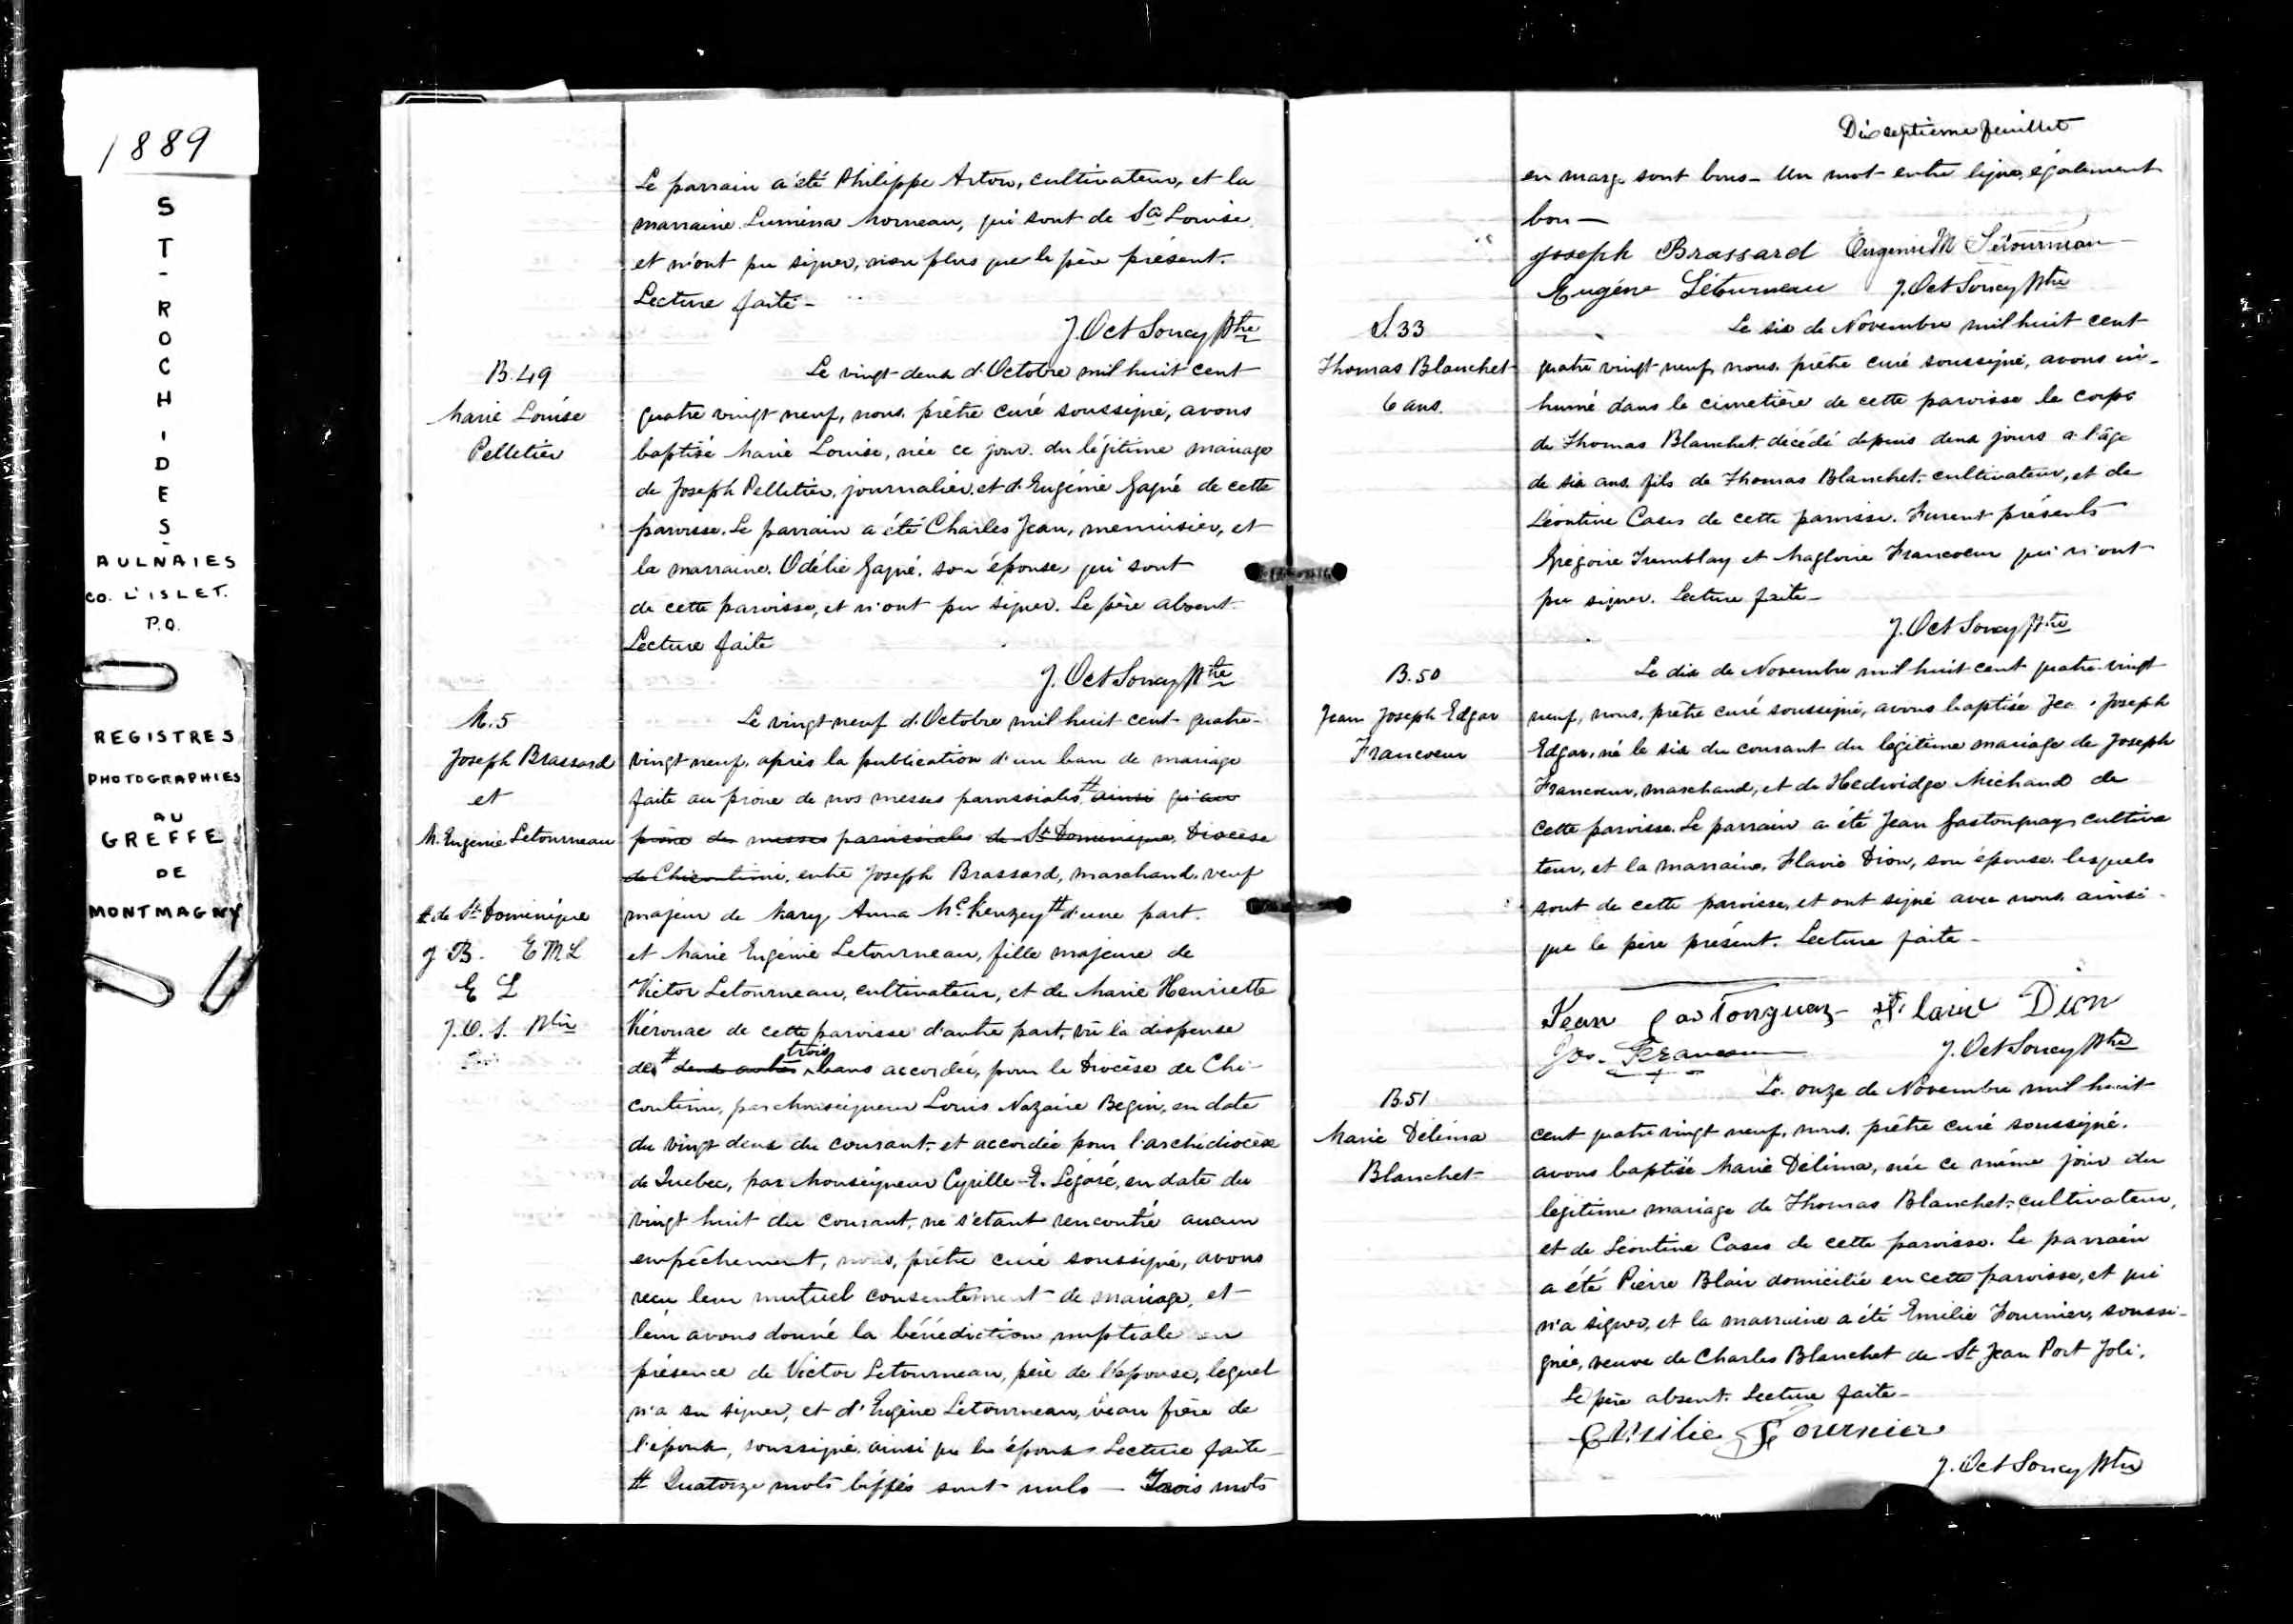 1889
ST-ROCH-DES-
AULNAIES
CO. L'ISLET.
P.Q.
REGISTRES
PHOTOGRAPHIES
AU
GREFFE
DE
MONTMAGNY
Le parrain a été Philippe Arton, cultivateur, et la
marraine Lumina Morneau, qui sont de Ste Louise
et n'ont pu signer, non plus que le père présent.
Lecture faite -
J. Oct Soucy Ptre
B. 49
Marie Louise
Pelletier
Le vingt-deux d'Octobre mil huit cent
quatre vingt neuf, nous, prêtre curé soussigné, avons
baptisé Marie Louise, née ce jour du légitime mariage
de Joseph Pelletier, journalier, et d'Eugénie Gagné de cette
paroisse. Le parrain a été Charles Jean, menuisier, et
la marraine, Odélie Gagné, son épouse, qui sont
de cette paroisse, et n'ont pu signer. Le père absent.
Lecture faite
J. Oct Soucy Ptre
M. 5
Joseph Brassard
et
M. Eugénie Letourneau
# de St Dominique
J. B. E M L
E L
J. O. S. Ptre
Le vingt neuf d'Octobre mil huit cent quatre-
vingt neuf, après la publication d'un ban de mariage
faite au prône de nos messes paroissiales # ainsi qu'au
prône des messes paroissiales de St Dominique, Diocèse
de Chicoutimi, entre Joseph Brassard, marchand, veuf
majeur de Mary Anna McKenzey # d'une part.
et Marie Eugénie Letourneau, fille majeure de
Victor Letourneau, cultivateur, et de Marie Henriette
Kérouac de cette paroisse d'autre part, vû la dispense
des # deux autres trois bans accordée, pour le Diocèse de Chi-
coutimi, par Monseigneur Louis Nazaire Begin, en date
du vingt deux du courant, et accordée pour l'archidiocèse
de Québec, par Monseigneur Cyrille E. Légaré, en date du
vingt huit du courant, ne s'étant rencontré aucun
empêchement, nous, prêtre curé soussigné, avons
reçu leur mutuel consentement de mariage, et
leur avons donné la bénédiction nuptiale en
présence de Victor Letourneau, père de l'épouse, lequel
n'a su signer, et d'Eugène Letourneau, beau frère de
l'époux, soussigné ainsi que les époux. Lecture faite -
# Quatorze mots biffés sont nuls - Trois mots
Dix septième feuillet
en marge sont bons - Un mot entre ligne, également
bon -
Joseph Brassard Eugenie M Létourneau
Eugène Létourneau J. Oct Soucy Ptre
S. 33
Thomas Blanchet
6 ans.
Le six de Novembre mil huit cent
quatre vingt neuf, nous, prêtre curé soussigné, avons in-
humé dans le cimetière de cette paroisse le corps
de Thomas Blanchet, décédé depuis deux jours a l'âge
de six ans, fils de Thomas Blanchet, cultivateur, et de
Léontine Cases de cette paroisse. Furent présents
Grégoire Tremblay et Magloire Francoeur qui n'ont
pu signer. Lecture faite -
J. Oct Soucy Ptre
B. 50
Jean Joseph Edgar
Francoeur
Le dix de Novembre mil huit cent quatre-vingt
neuf, nous, prêtre curé soussigné, avons baptisé Jea Joseph
Edgar, né le six du courant du légitime mariage de Joseph
Francoeur, marchand, et de Hedwidge Michaud de
cette paroisse. Le parrain a été Jean Gastonguay, cultiva
teur, et la marraine, Flavie Dion, son épouse, lesquels
sont de cette paroisse, et ont signé avec nous, ainsi
que le père présent. Lecture faite -
Jean Gastonguay Flavie Dion
Jos. Francoeur J. Oct Soucy Ptre
B. 51
Marie Délima
Blanchet
Le onze de Novembre mil huit
cent quatre vingt neuf, nous, prêtre curé soussigné,
avons baptisé Marie Délima, née ce même jour du
légitime mariage de Thomas Blanchet, cultivateur,
et de Léontine Cases de cette paroisse. Le parrain
a été Pierre Blair domicilié en cette paroisse, et qui
n'a signer, et la marraine a été Emilie Fournier, soussi-
gnée, veuve de Charles Blanchet de St Jean Port Joli.
Le père absent. Lecture faite -
Emilie Fournier
J. Oct Soucy Ptre